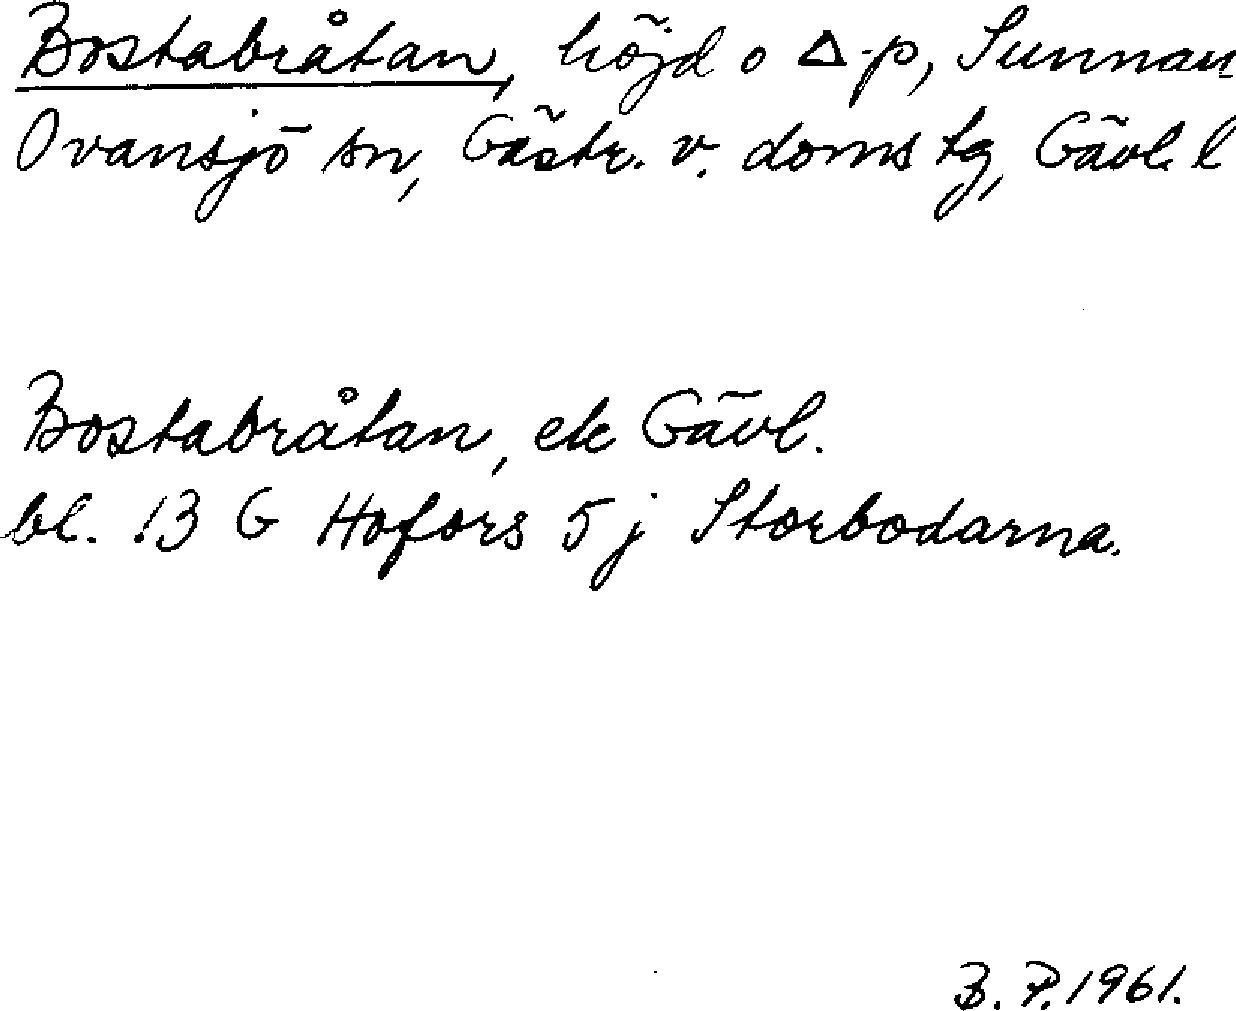 Bostabråtan, höjd o Δ-p, Sunnan
Ovansjö sn, Gästr. v. doms tg, Gävl. l
Bostabråtan, ek Gävl.
bl. 13 G Hofors 5 j Storbodarna.
B. P. 1961.